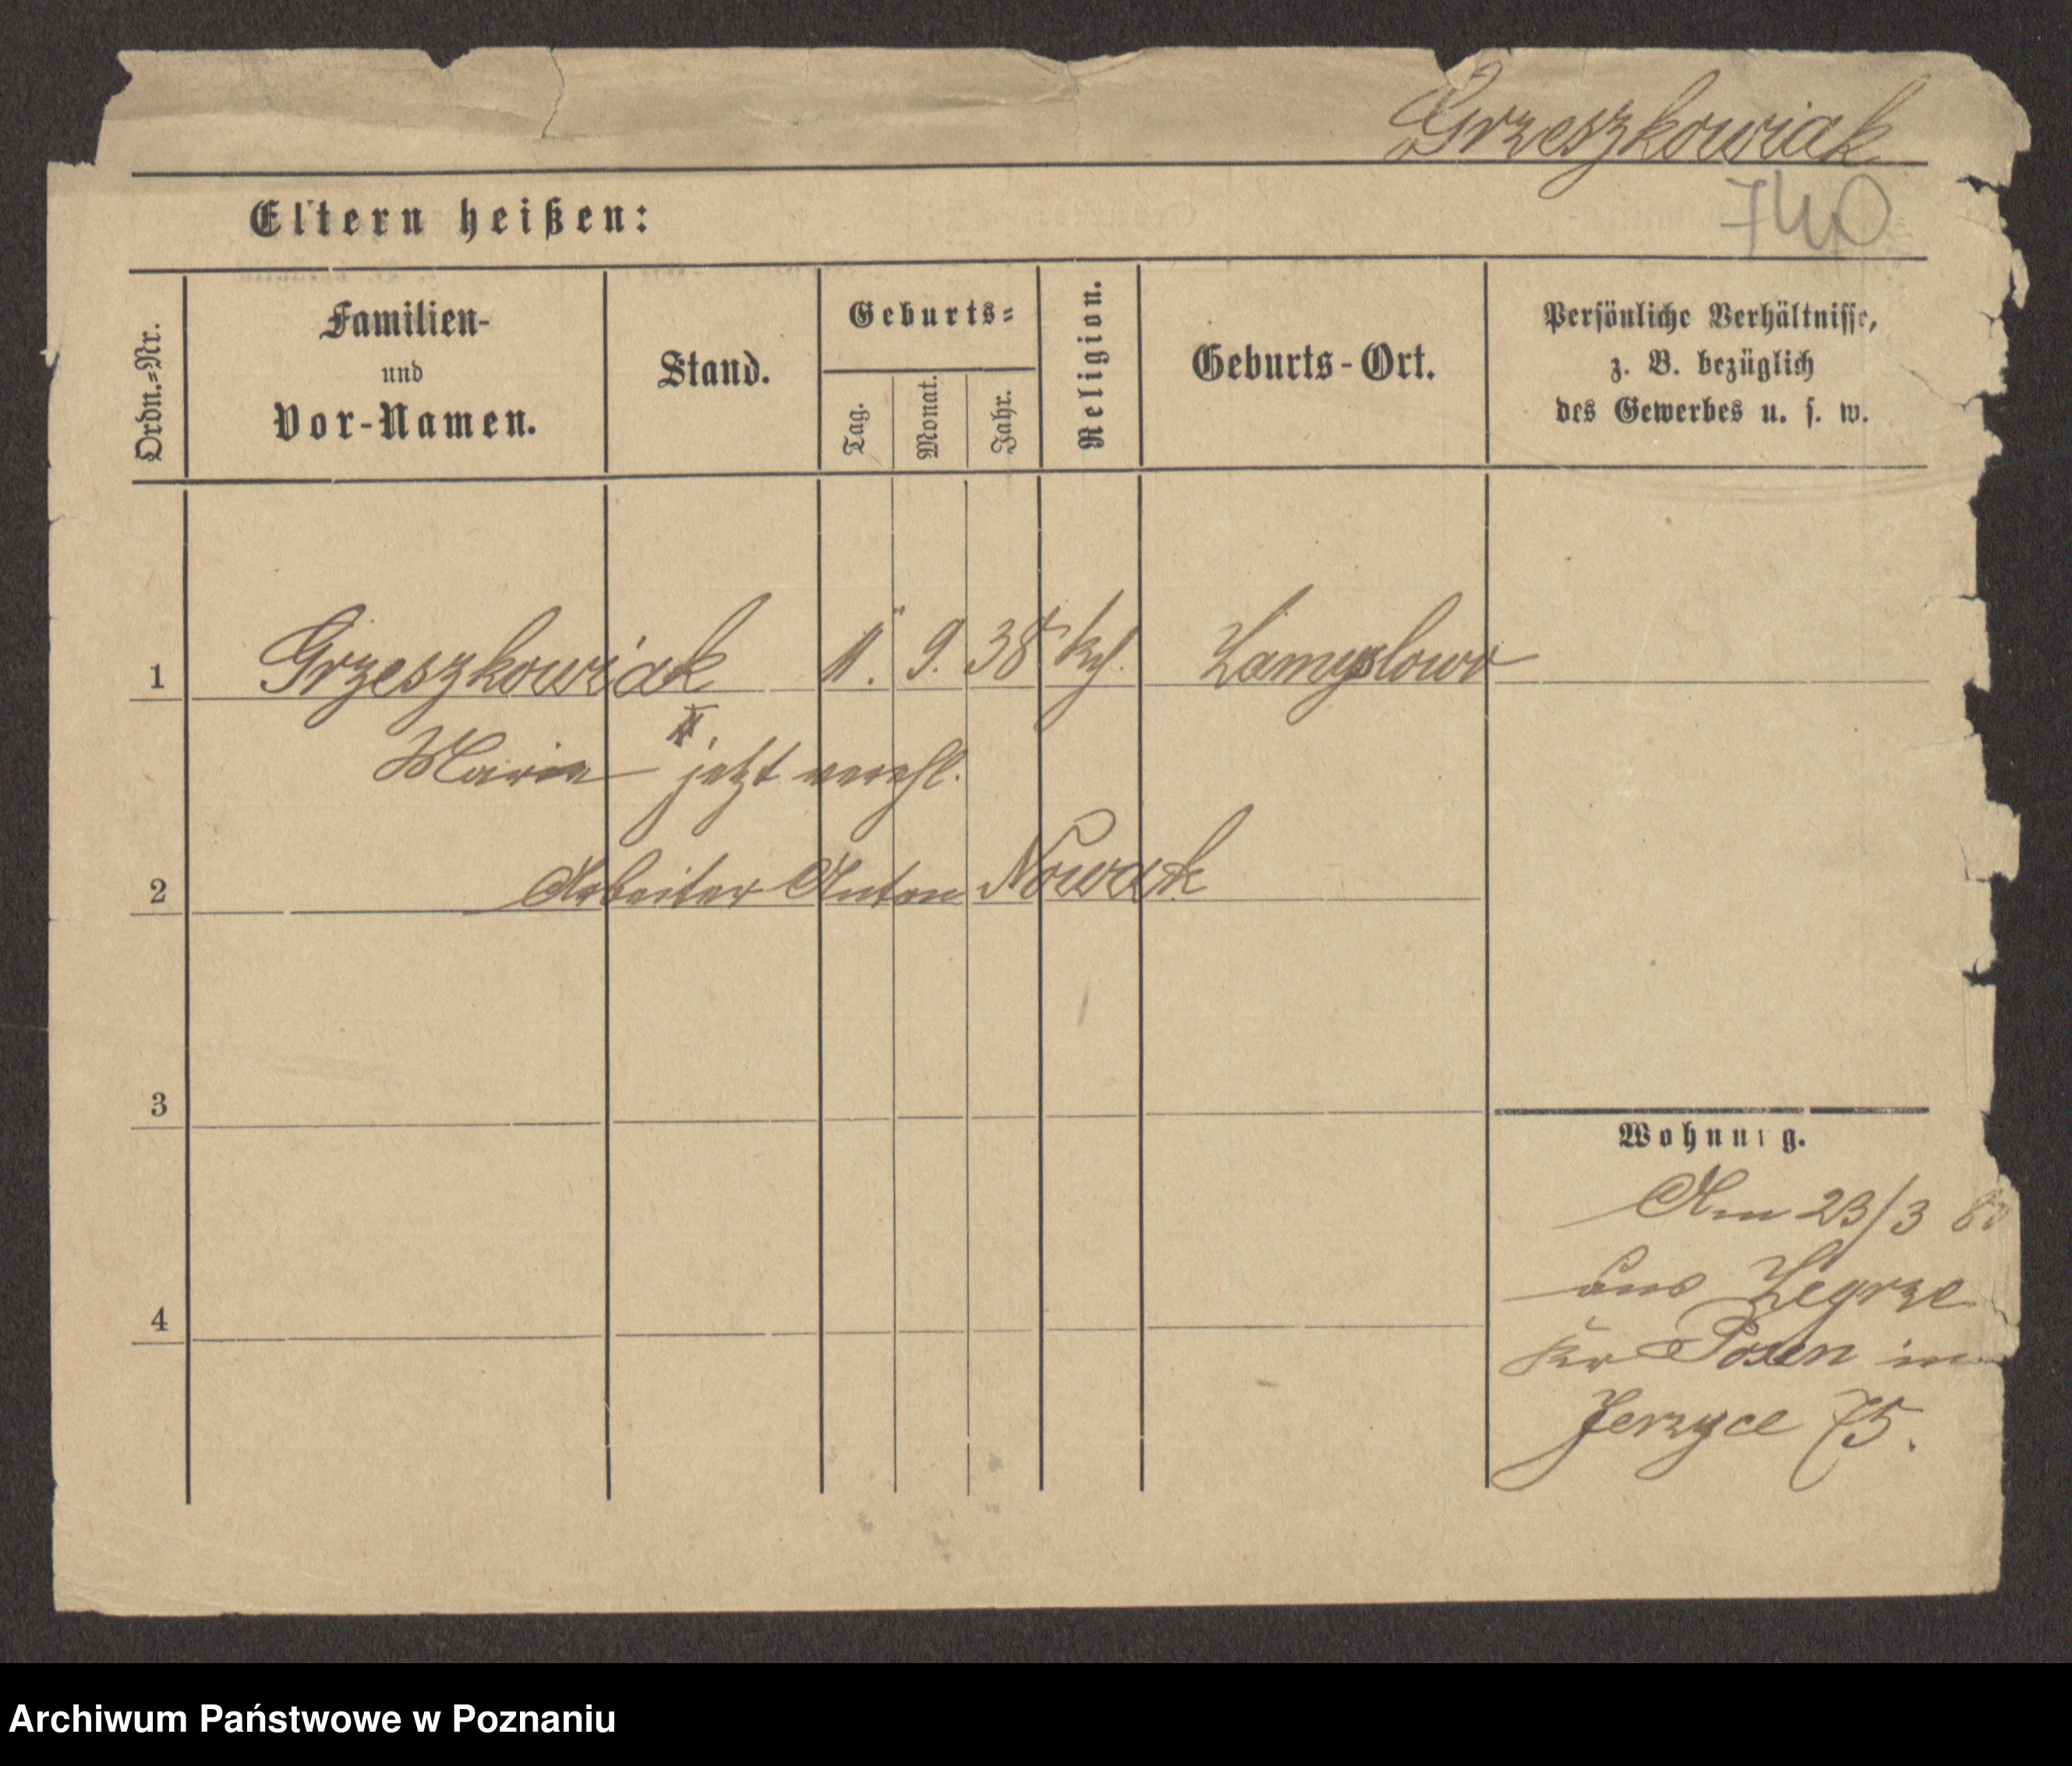 Grzeszkowiak
740
Eltern heißen:
Ordn.=Nr.
Familien-
und
Vor-Namen.
Stand.
Geburts=
Tag.
Monat.
Jahr.
Religion.
Geburts-Ort.
Persönliche Verhältnisse,
z. B. bezüglich
des Gewerbes u. s. w.
1 Grzeszkowiak 11. 9. 38 kth. Zamyslowo
Marie jetzt verehl.
2 Arbeiter Anton Nowak
3
4
Wohnung.
Am 23/3
aus Zegrze
Kr Posen in
Jerzyce 75.
Archiwum Państwowe w Poznaniu